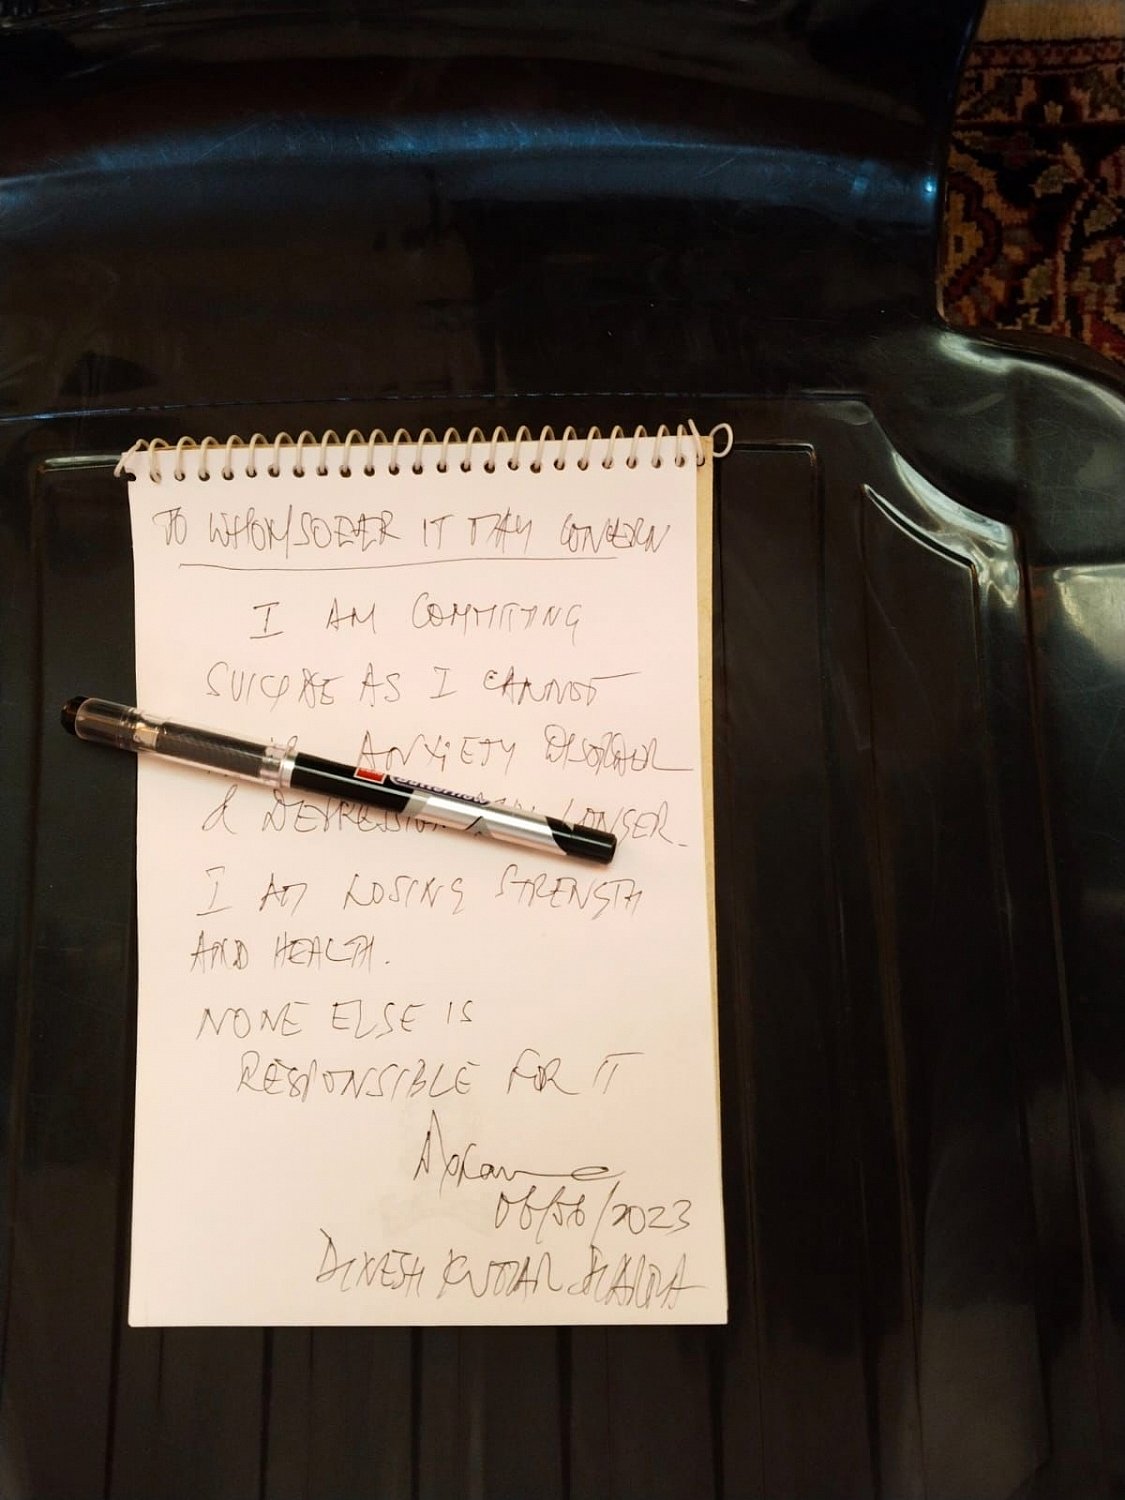 TO WHOMSOEVER IT MAY CONCERN
I AM COMMITTING
SUICIDE AS I CANNOT
ANXIETY DISORDER
& DEPRESSION LONGER.
I AM LOSING STRENGTH
AND HEALTH.
NONE ELSE IS
RESPONSIBLE FOR IT
06/06/2023
DINESH KUMAR SHARMA